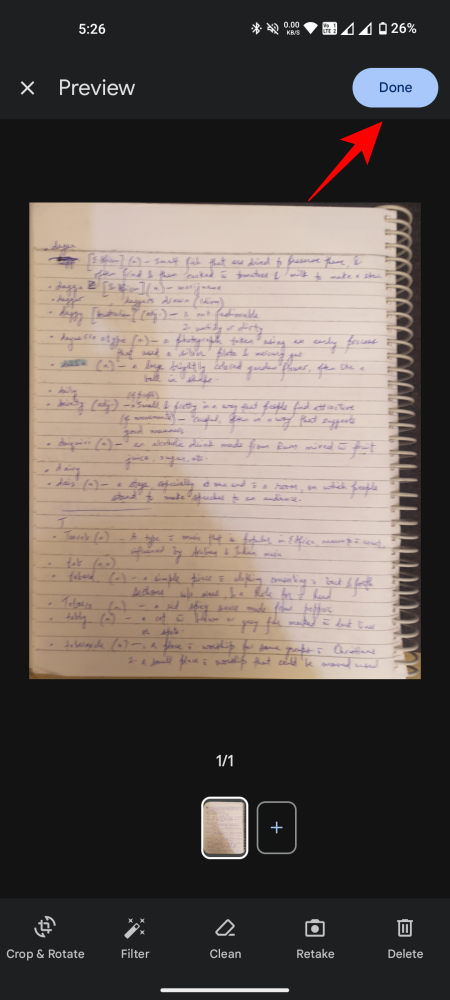 5:26 0.00 KB/S Vo 1 LTE 2 26%
Preview
Done
dagga
[S. African] (n) - small fish that are dried to preserve them &
often fried & then cooked tomatoes & milk to make a stew
dagga [S. African] (n) - marijuana
dagger
daggy [Australian] (adj.) - 1. not fashionable
2. untidy or dirty
daguerreotype (n) - a photograph taken using an early process
that used a silver plate & mercury gas
(n) - a large brightly colored garden flower, often like a
ball in shape
daily
dainty (adj) - small & pretty in a way that people find attractive
(of movements) - careful, often in a way that suggests
good manners
daiquiri (n) - an alcoholic drink made from Rum mixed fruit
juice, sugar, etc.
dairy
dais (n) - a stage especially at one end a room, on which people
stand to make speeches to an audience.
T
- A type music that is popular in E Africa,
influenced by Arabian & Indian music
tab (n,v)
tabard (n) - a simple piece clothing consisting a back & front
sections a hole for head
Tabasco (n) - a red spicy sauce made from peppers
tabby (n) - a cat brown or grey fur marked lines
or spots
tabernacle (n) - 1. a place worship for some groups Christians
2. a small place worship that could be moved
1/1
+
Crop & Rotate Filter Clean Retake Delete